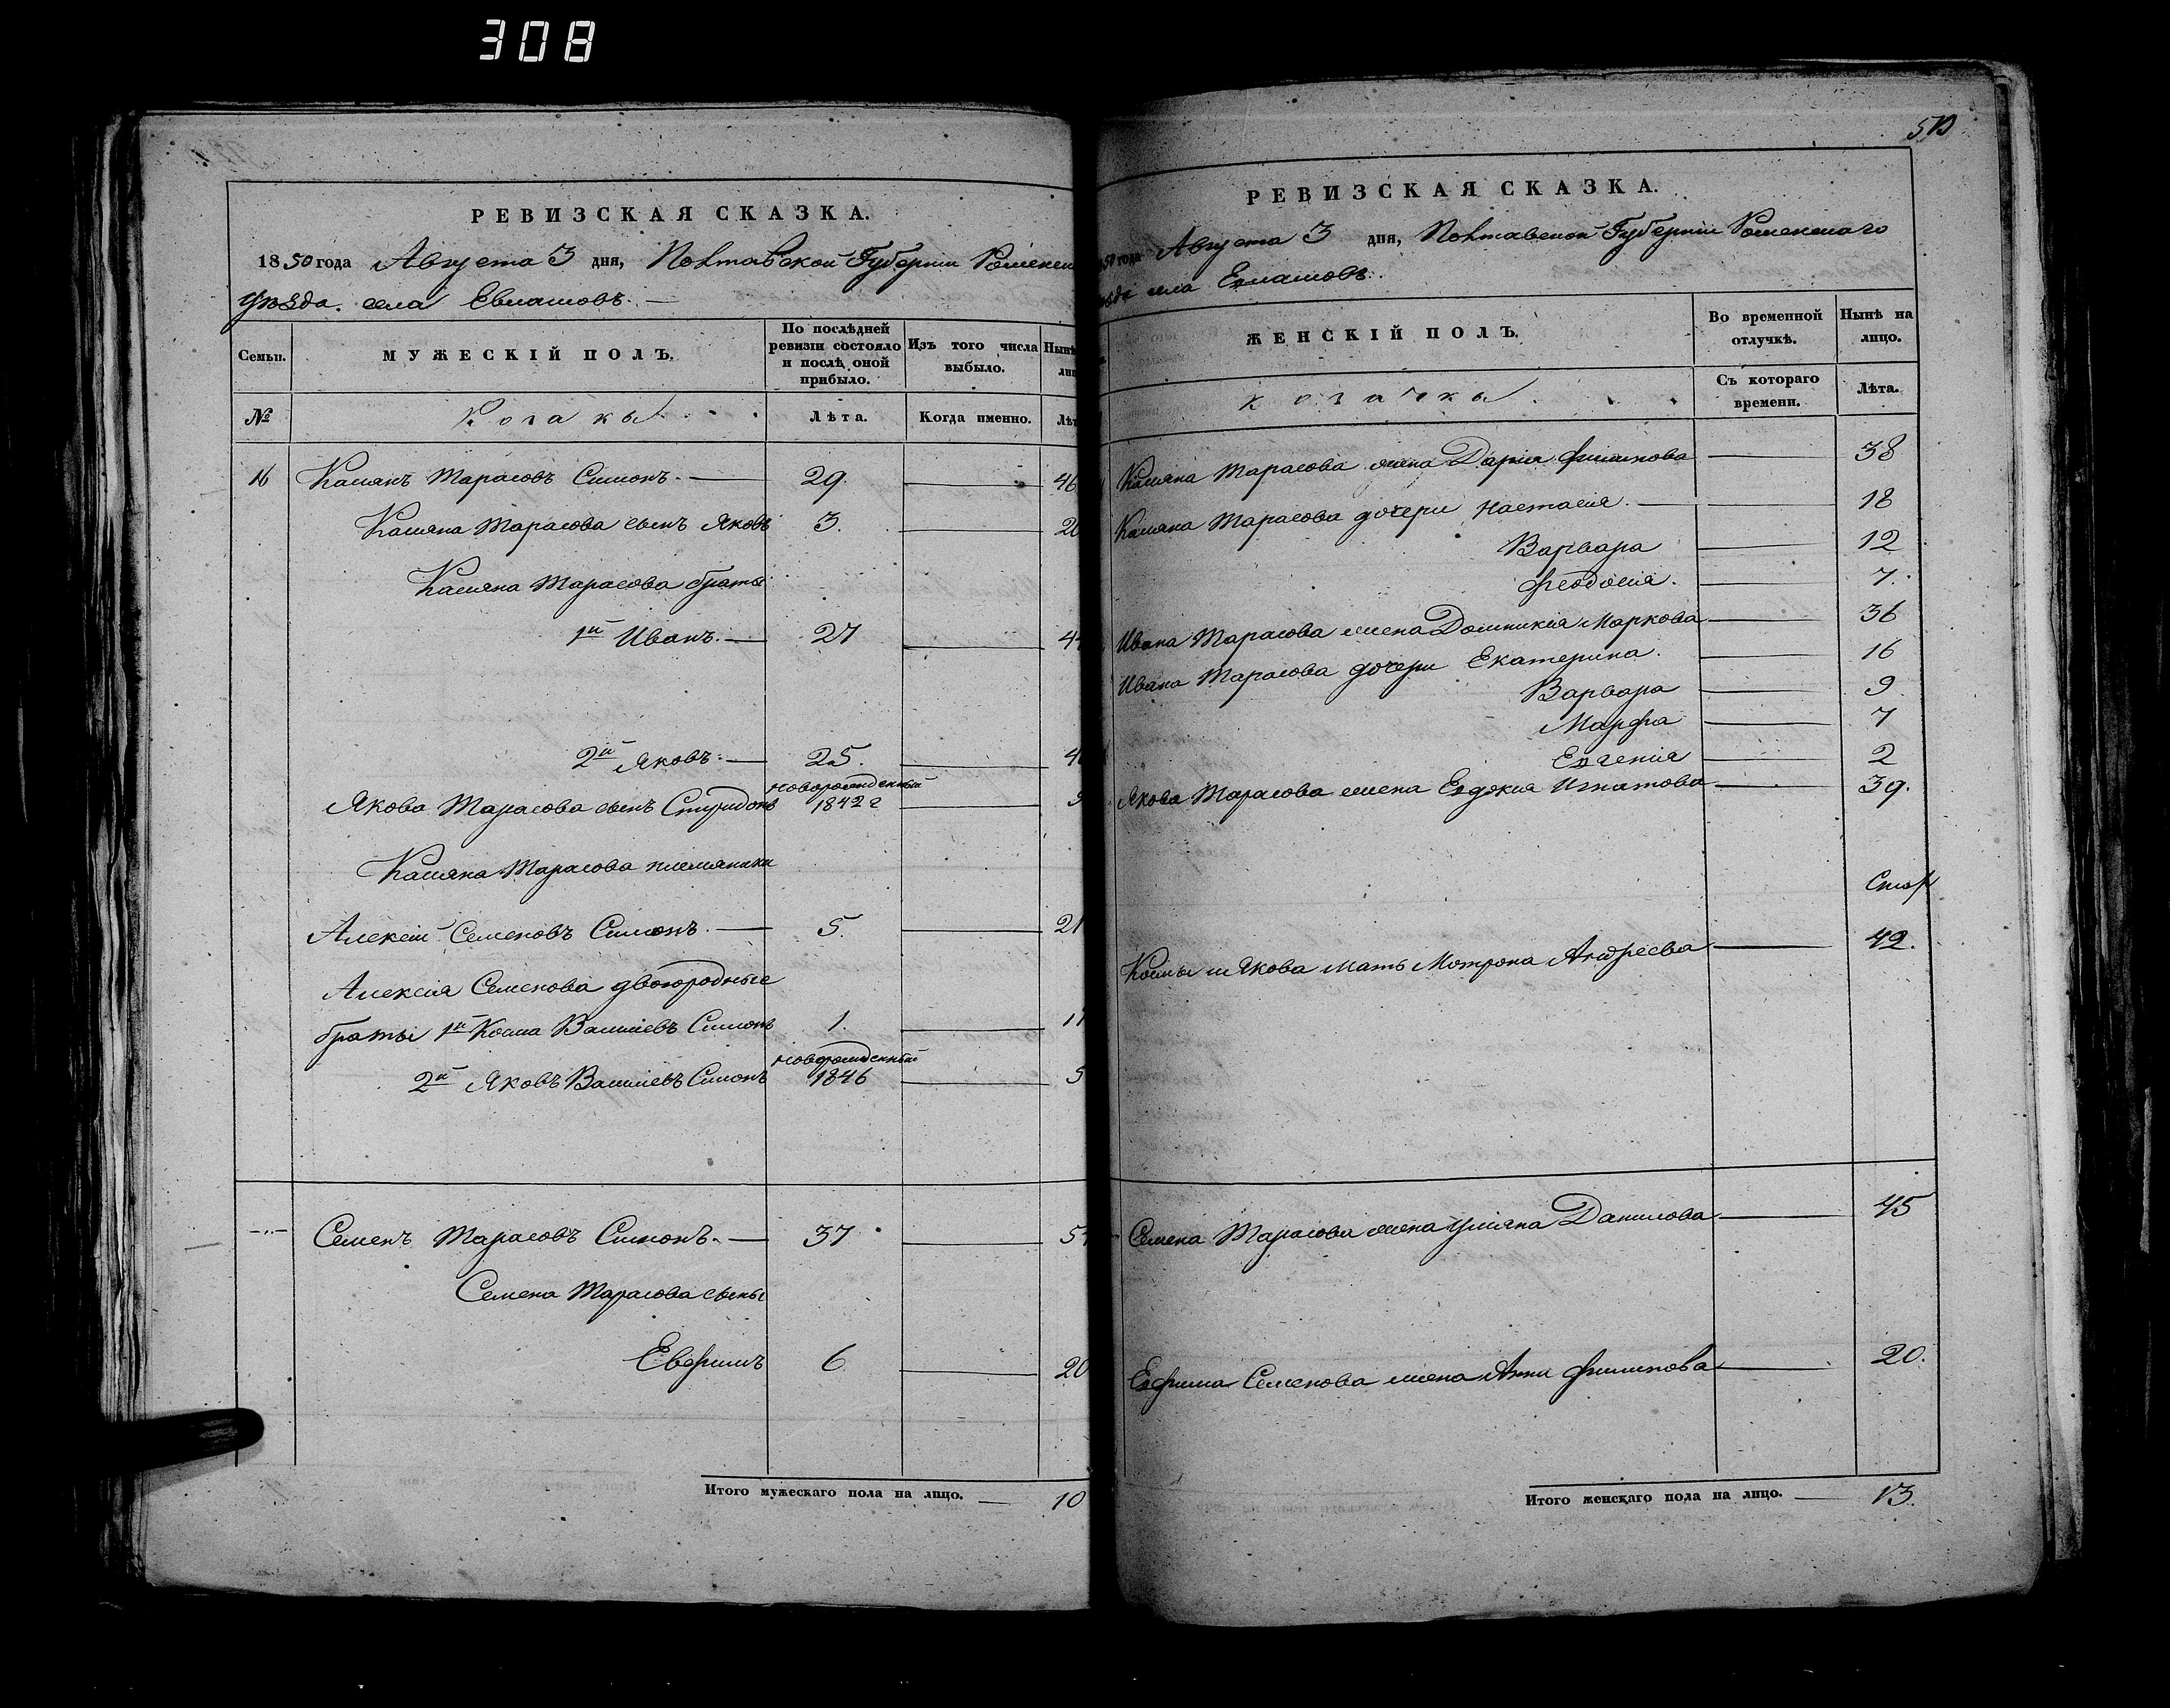 308
РЕВИЗСКАЯ СКАЗКА.
1850 года Августа 3 дня, Полтавской Губерніи Роменск
Уѣзда. села Евлашовъ. —
Семьи.
МУЖЕСКІЙ ПОЛЪ.
По послѣдней
ревизіи состояло
и послѣ оной
прибыло.
Изъ того числа
выбыло.
Нынѣ
лиц
№
Козаки
Лѣта.
Когда именно.
Лѣт
16 Касянъ Тарасовъ Симонъ. — 29. — 46
Касяна Тарасова сынъ Яковъ 3. — 20
Касяна Тарасова браты
1й Иванъ. — 27 — 44
2й Яковъ. — 25. — 4
новорожденный
Якова Тарасова сынъ Спиридонъ 1842 г — 9
Касяна Тарасова племянники
Алексій Семеновъ Симонъ. — 5. — 21
Алексія Семенова двоюродные
браты 1й Косма Васильевъ Симонъ 1. — 17
новорожденный
2й Яковъ Васильевъ Симонъ 1846 — 5
Семенъ Тарасовъ Симонъ. — 37 — 5
Семена Тарасова сыны
Евфимъ 6 — 20
Итого мужескаго пола на лицо. — 10
РЕВИЗСКАЯ СКАЗКА.
50 года Августа 3 дня, Полтавской Губерніи Роменскаго
ѣзда села Евлашовъ.
ЖЕНСКІЙ ПОЛЪ.
Во временной
отлучкѣ.
Нынѣ на
лицо.
Козачки
Съ котораго
времени.
Лѣта.
Касяна Тарасова жена Дарія Филипова — 38
Касяна Тарасова дочери Настасія. — 18
Варвара — 12
Феодосія. — 7.
Ивана Тарасова жена Домникія Маркова — 36
Ивана Тарасова дочери Екатерина. — 16
Варвара — 9
Марфа — 7
Евгенія — 2
Якова Тарасова жена Евдокія Игнатова — 39.
Космы и Якова мать Мотрона Андреева — 42.
Семена Тарасова жена Уліяна Данилова — 45
Евфима Семенова жена Анна Филипова — 20.
Итого женскаго пола на лицо. — 13.